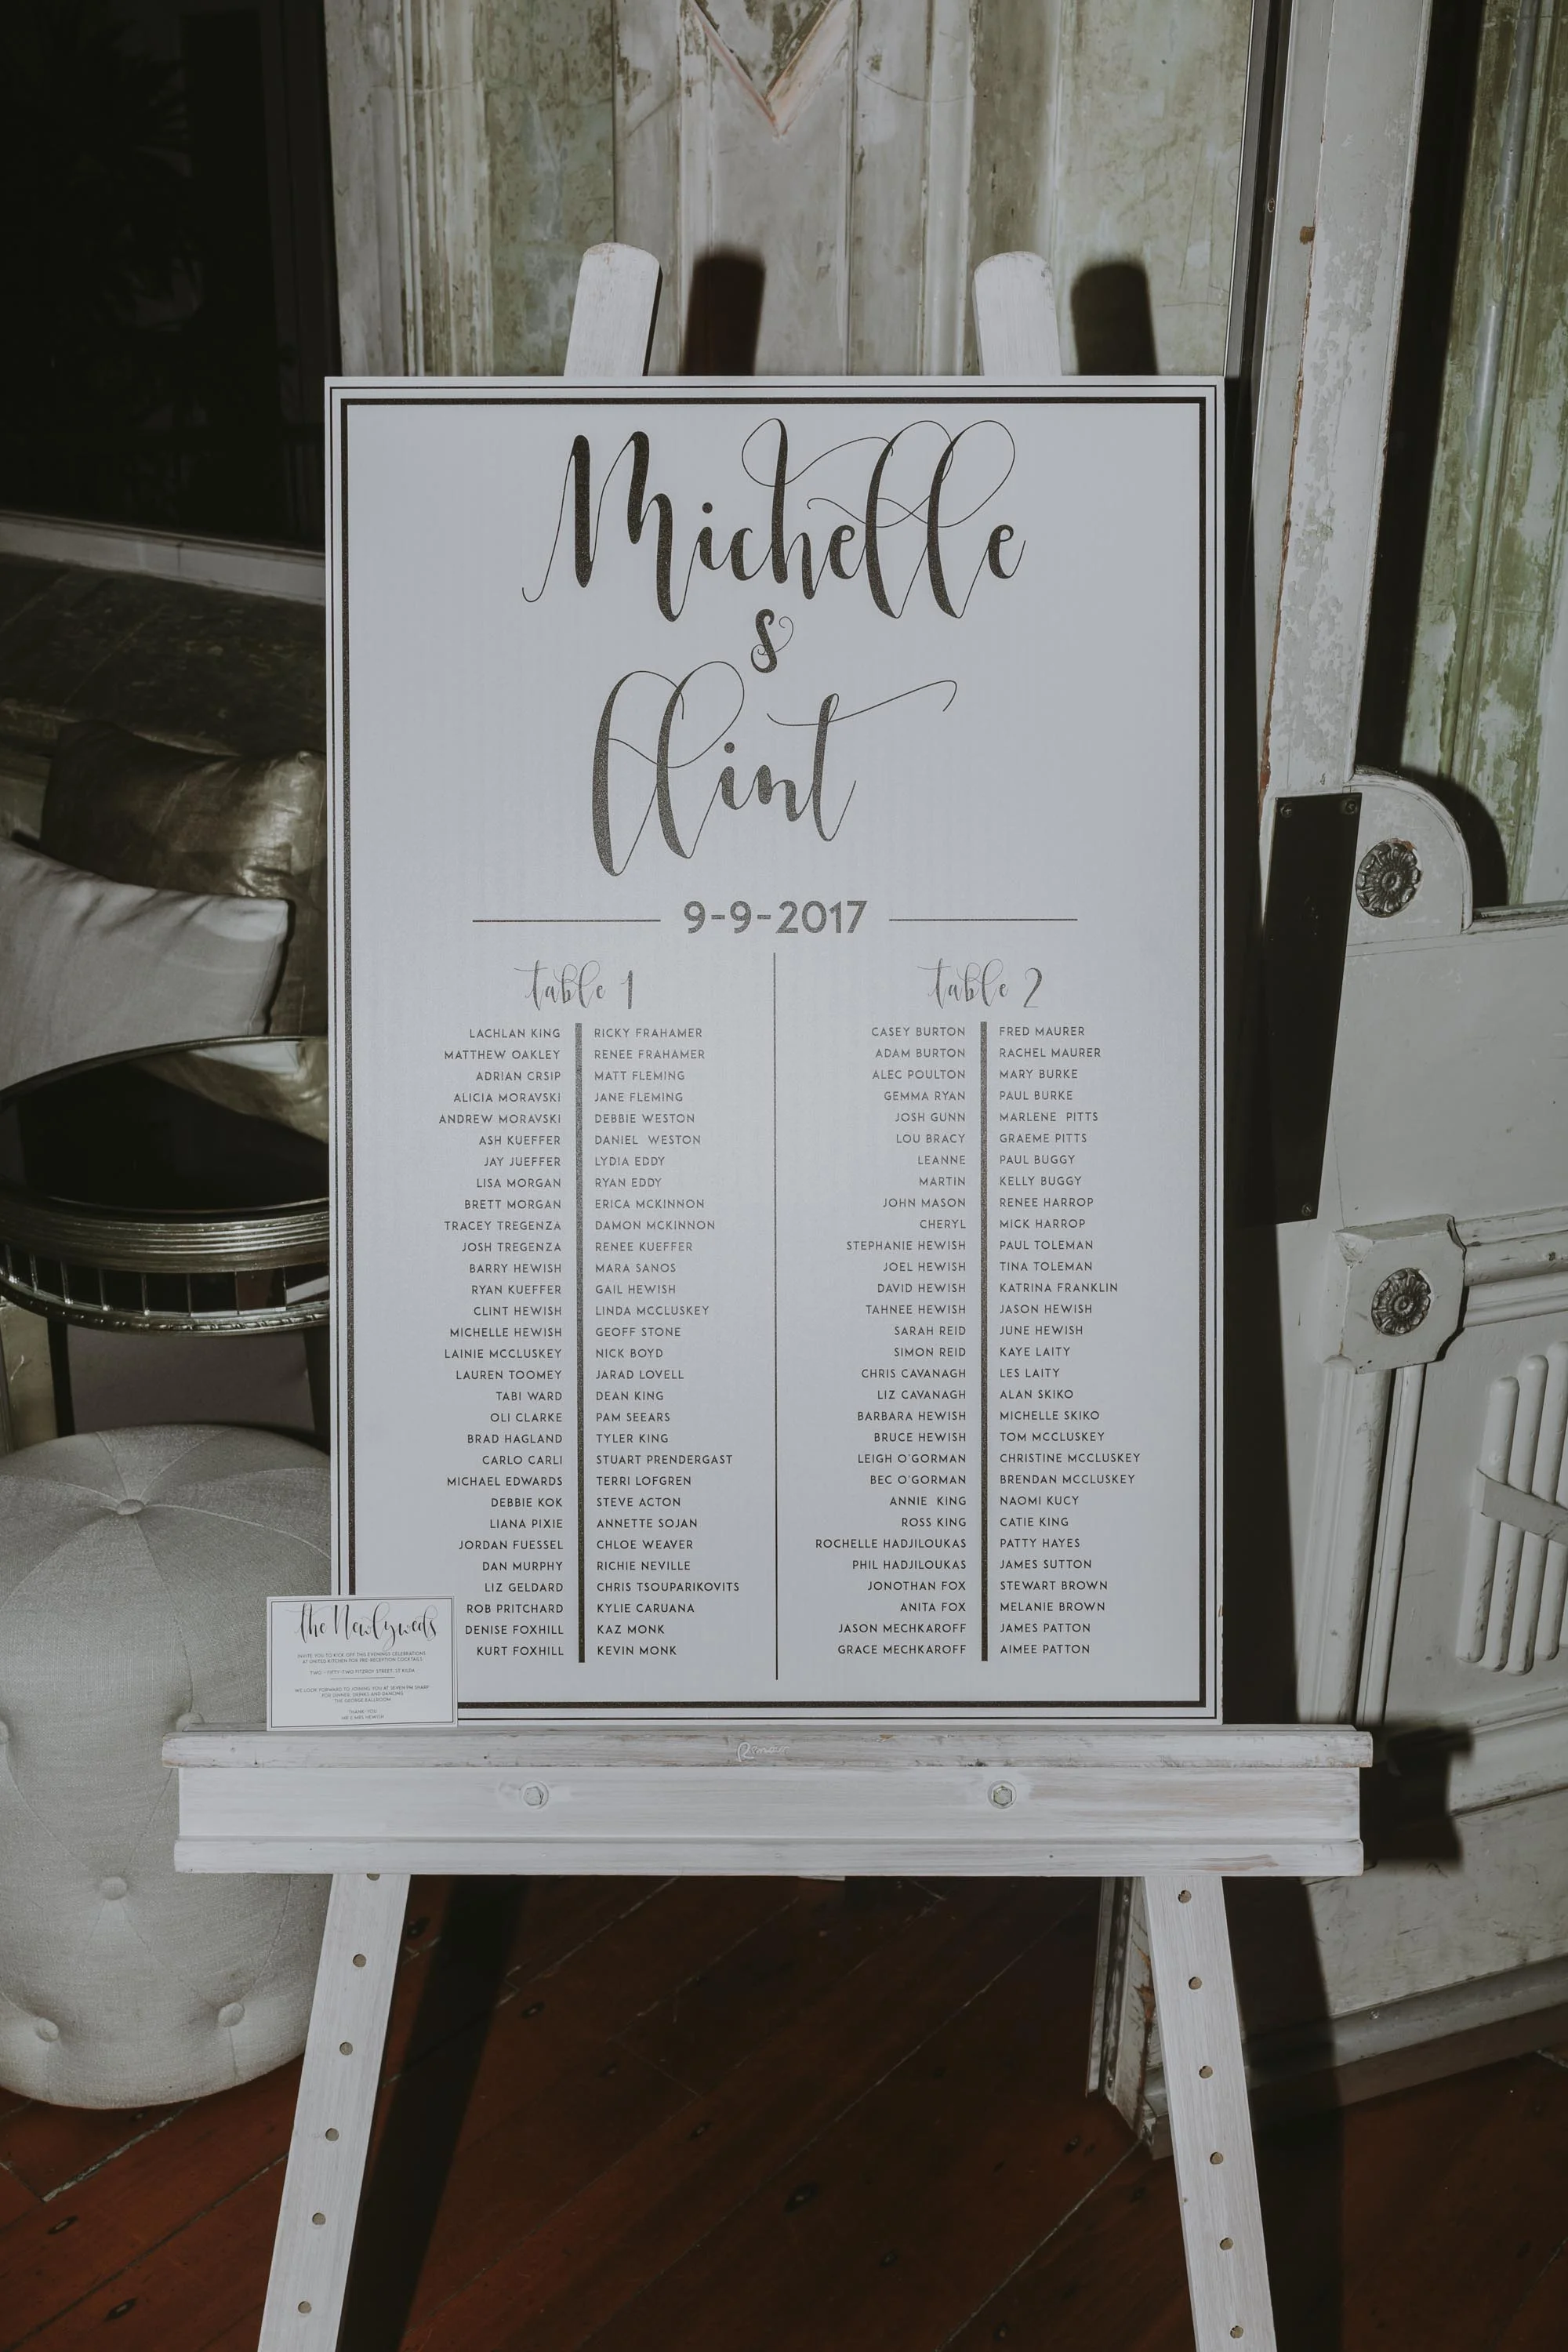 Michelle
&
Clint
9-9-2017
table 1
LACHLAN KING
MATTHEW OAKLEY
ADRIAN CRSIP
ALICIA MORAVSKI
ANDREW MORAVSKI
ASH KUEFFER
JAY JUEFFER
LISA MORGAN
BRETT MORGAN
TRACEY TREGENZA
JOSH TREGENZA
BARRY HEWISH
RYAN KUEFFER
CLINT HEWISH
MICHELLE HEWISH
LAINIE MCCLUSKEY
LAUREN TOOMEY
TABI WARD
OLI CLARKE
BRAD HAGLAND
CARLO CARLI
MICHAEL EDWARDS
DEBBIE KOK
LIANA PIXIE
JORDAN FUESSEL
DAN MURPHY
LIZ GELDARD
ROB PRITCHARD
DENISE FOXHILL
KURT FOXHILL
RICKY FRAHAMER
RENEE FRAHAMER
MATT FLEMING
JANE FLEMING
DEBBIE WESTON
DANIEL WESTON
LYDIA EDDY
RYAN EDDY
ERICA MCKINNON
DAMON MCKINNON
RENEE KUEFFER
MARA SANOS
GAIL HEWISH
LINDA MCCLUSKEY
GEOFF STONE
NICK BOYD
JARAD LOVELL
DEAN KING
PAM SEEARS
TYLER KING
STUART PRENDERGAST
TERRI LOFGREN
STEVE ACTON
ANNETTE SOJAN
CHLOE WEAVER
RICHIE NEVILLE
CHRIS TSOUPARIKOVITS
KYLIE CARUANA
KAZ MONK
KEVIN MONK
table 2
CASEY BURTON
ADAM BURTON
ALEC POULTON
GEMMA RYAN
JOSH GUNN
LOU BRACY
LEANNE
MARTIN
JOHN MASON
CHERYL
STEPHANIE HEWISH
JOEL HEWISH
DAVID HEWISH
TAHNEE HEWISH
SARAH REID
SIMON REID
CHRIS CAVANAGH
LIZ CAVANAGH
BARBARA HEWISH
BRUCE HEWISH
LEIGH O'GORMAN
BEC O'GORMAN
ANNIE KING
ROSS KING
ROCHELLE HADJILOUKAS
PHIL HADJILOUKAS
JONOTHAN FOX
ANITA FOX
JASON MECHKAROFF
GRACE MECHKAROFF
FRED MAURER
RACHEL MAURER
MARY BURKE
PAUL BURKE
MARLENE PITTS
GRAEME PITTS
PAUL BUGGY
KELLY BUGGY
RENEE HARROP
MICK HARROP
PAUL TOLEMAN
TINA TOLEMAN
KATRINA FRANKLIN
JASON HEWISH
JUNE HEWISH
KAYE LAITY
LES LAITY
ALAN SKIKO
MICHELLE SKIKO
TOM MCCLUSKEY
CHRISTINE MCCLUSKEY
BRENDAN MCCLUSKEY
NAOMI KUCY
CATIE KING
PATTY HAYES
JAMES SUTTON
STEWART BROWN
MELANIE BROWN
JAMES PATTON
AIMEE PATTON
the Newlyweds
INVITE YOU TO KICK OFF THIS EVENINGS CELEBRATIONS
AT UNITED KITCHEN FOR PRE-RECEPTION COCKTAILS
TWO - FIFTY TWO FITZROY STREET, ST KILDA
WE LOOK FORWARD TO JOINING YOU AT SEVEN PM SHARP
FOR DINNER, DRINKS AND DANCING
THE GEORGE BALLROOM
THANK YOU
MR & MRS HEWISH